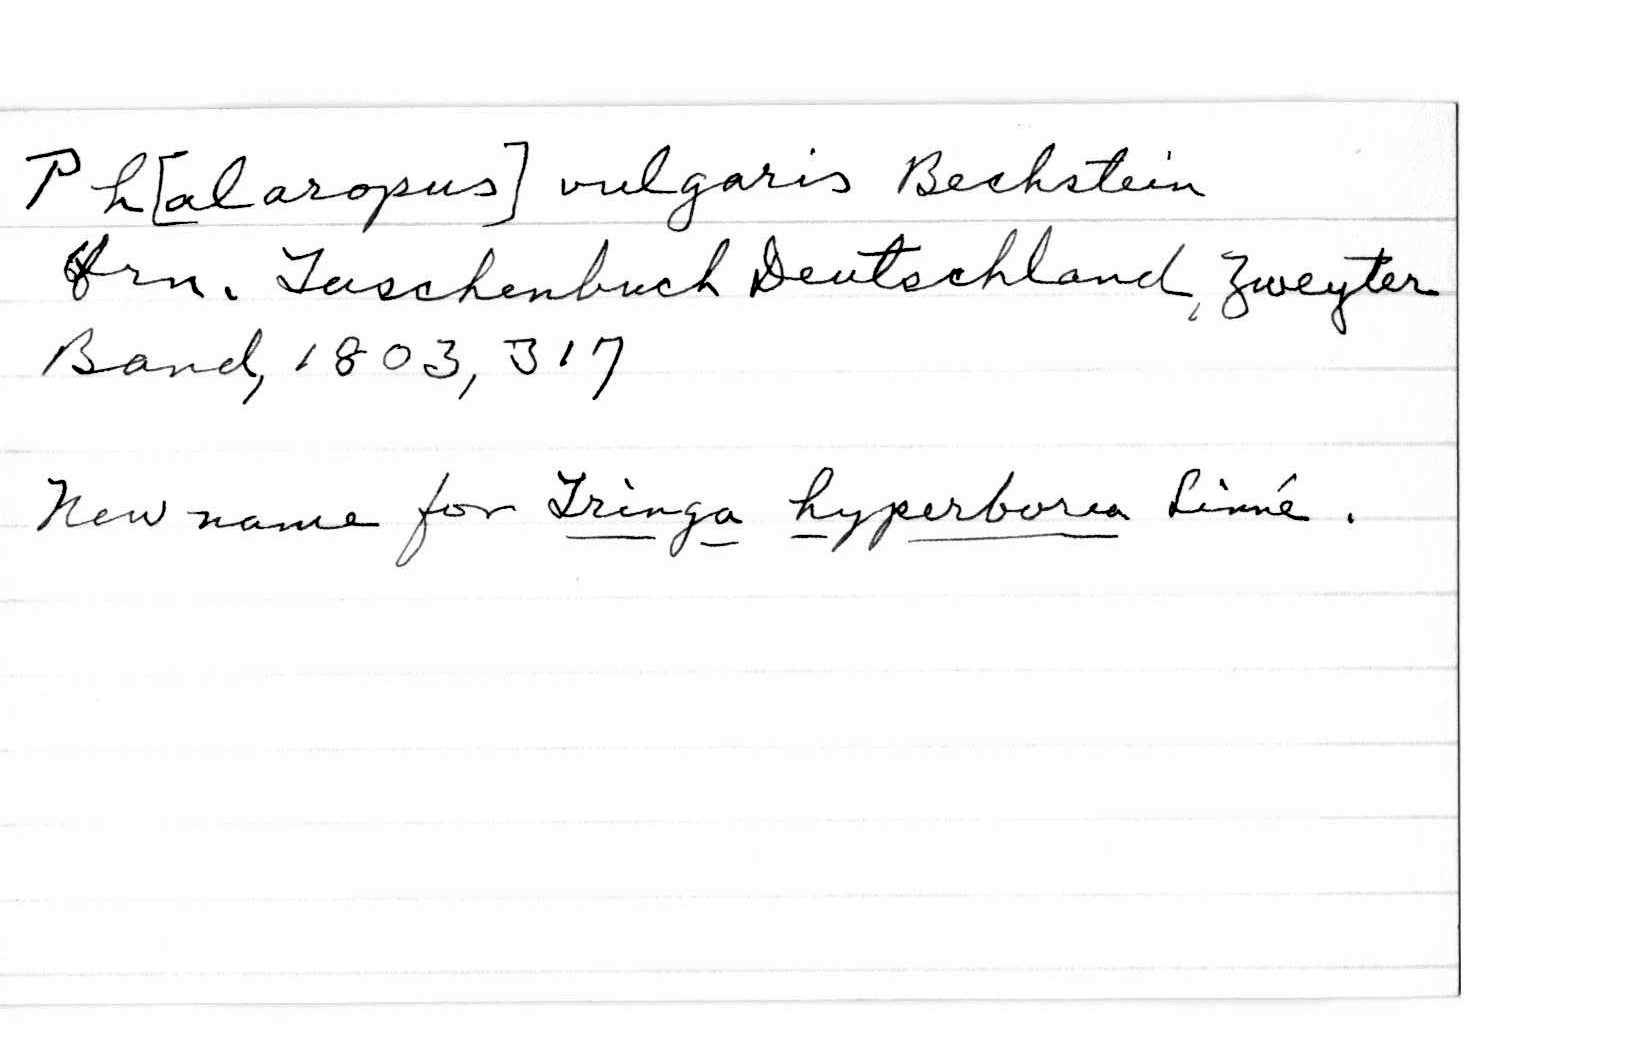 Ph[alaropus] vulgaris Bechstein
Orn. Taschenbuch Deutschland, Zweyter
Band, 1803, 317
New name for Tringa hyperborea Linné.